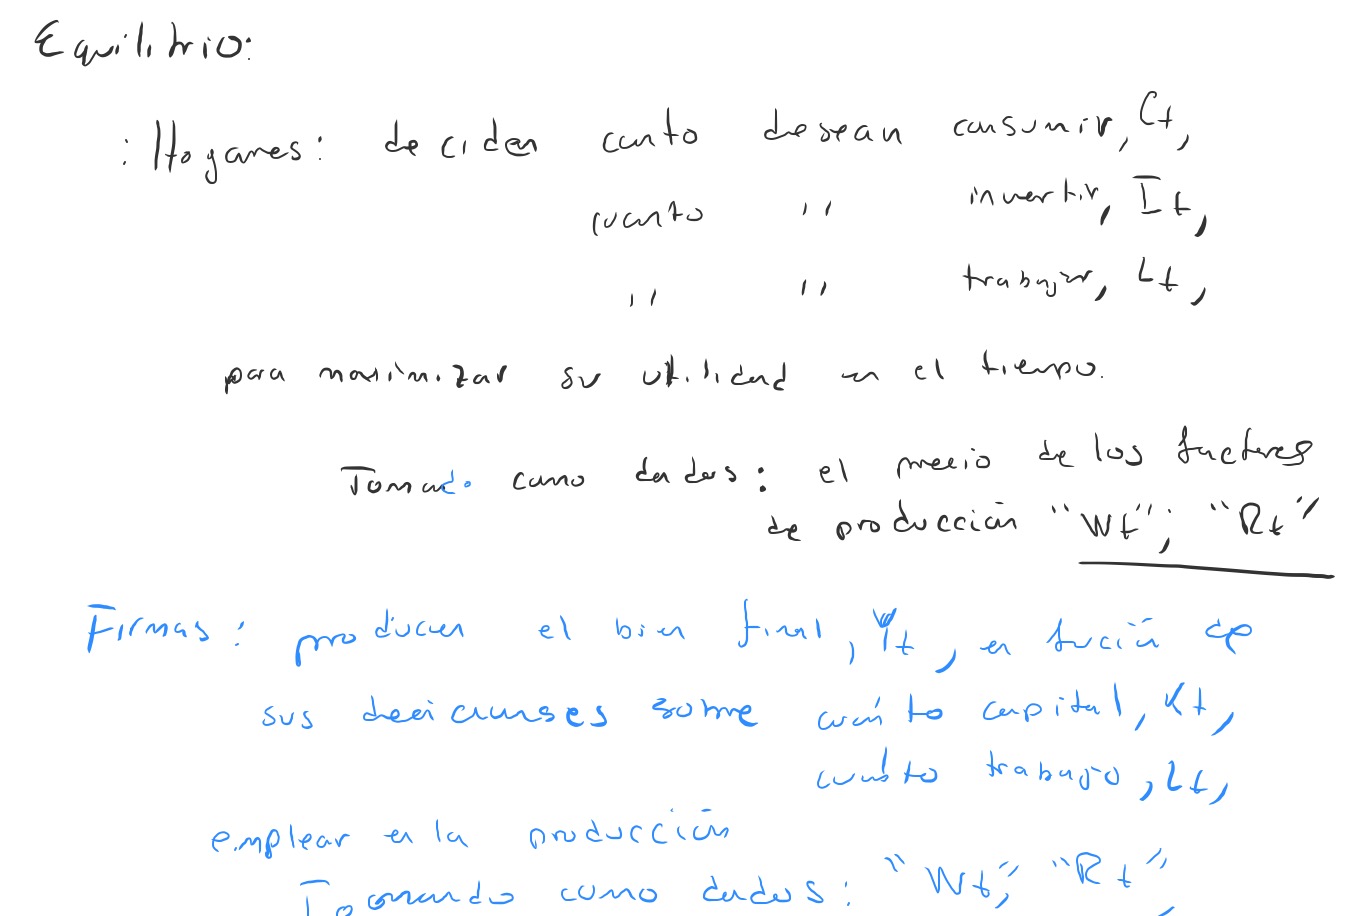 Equilibrio:
: Hogares: deciden cuanto desean consumir, Ct,
cuanto '' invertir, It,
'' '' trabajar, Lt,
para maximizar su utilidad en el tiempo.
Tomado como dados: el precio de los factores
de producción "Wt"; "Rt"
Firmas: producen el bien final, Yt, en fución de
sus decisiones sobre cuánto capital, Kt,
cuánto trabajo, Lt,
emplear en la producción
Tomando como dados: "Wt"; "Rt",